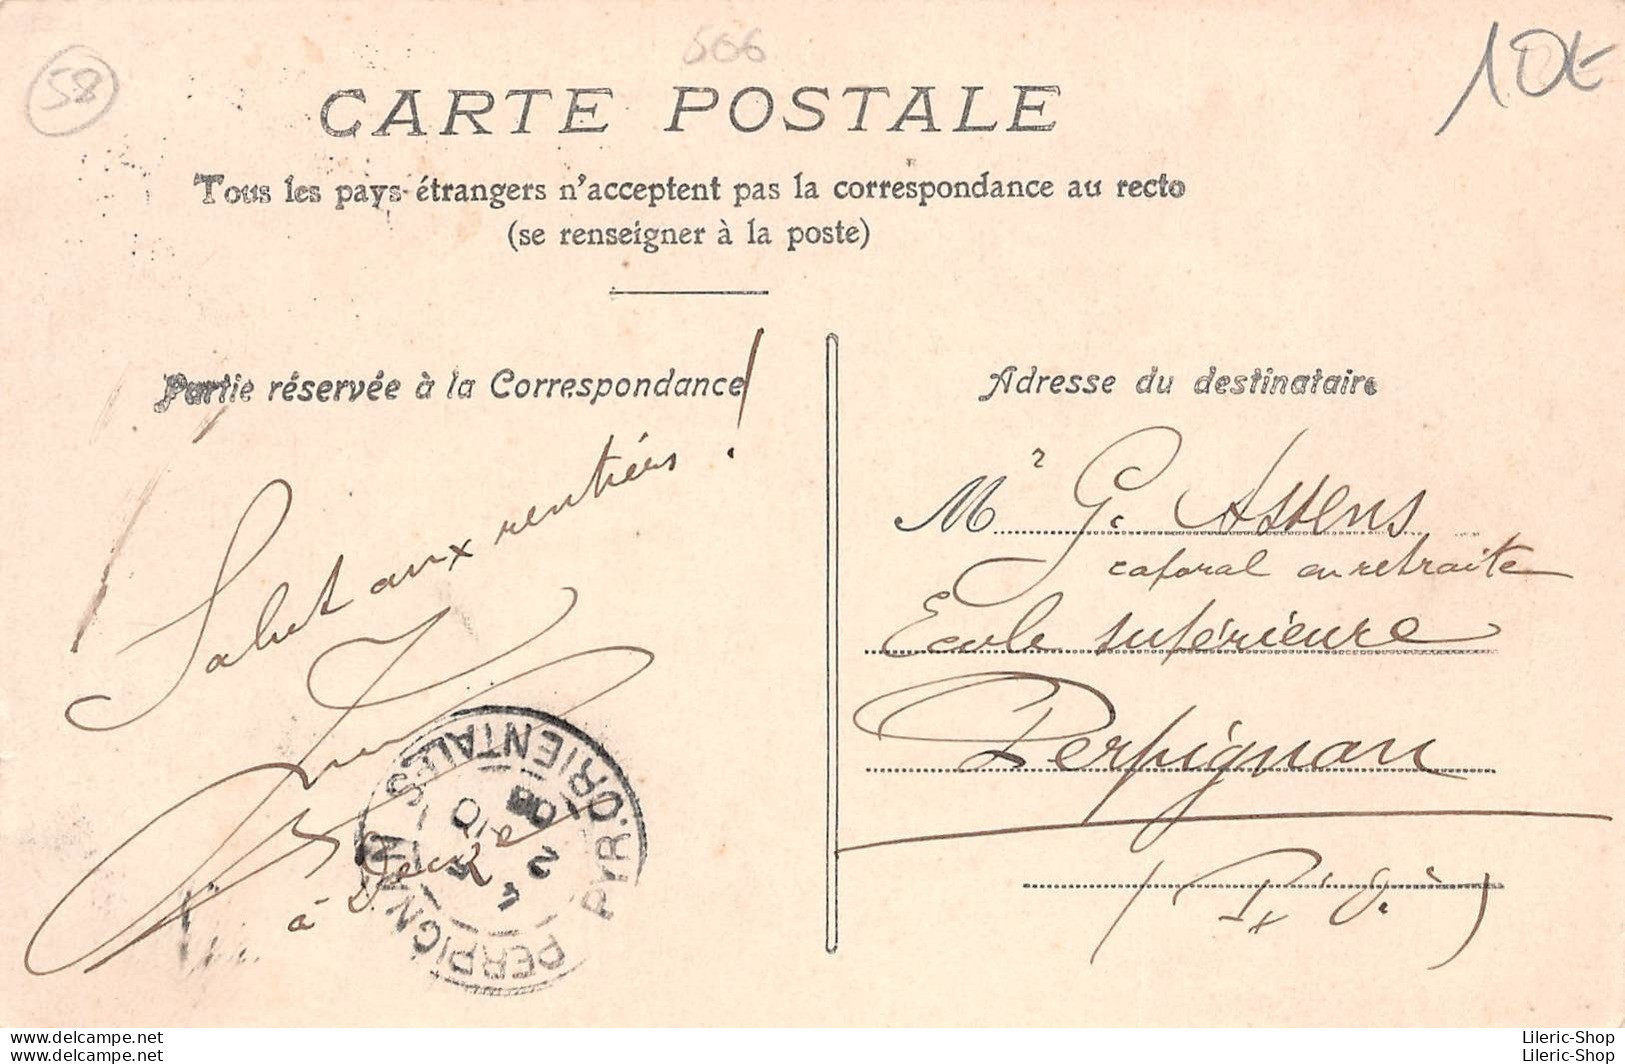 58
506
10€
CARTE POSTALE
Tous les pays étrangers n'acceptent pas la correspondance au recto
(se renseigner à la poste)
Partie réservée à la Correspondance
Salut aux rentiers !
à Decize
PERPIGNAN
PYR. ORIENTALES
Adresse du destinataire
Mr G. Assens
caporal en retraite
Ecole supérieure
Perpignan
(Px Ol.)
Lileric-Shop
Lileric-Shop
Lileric-Shop
Lileric-Shop